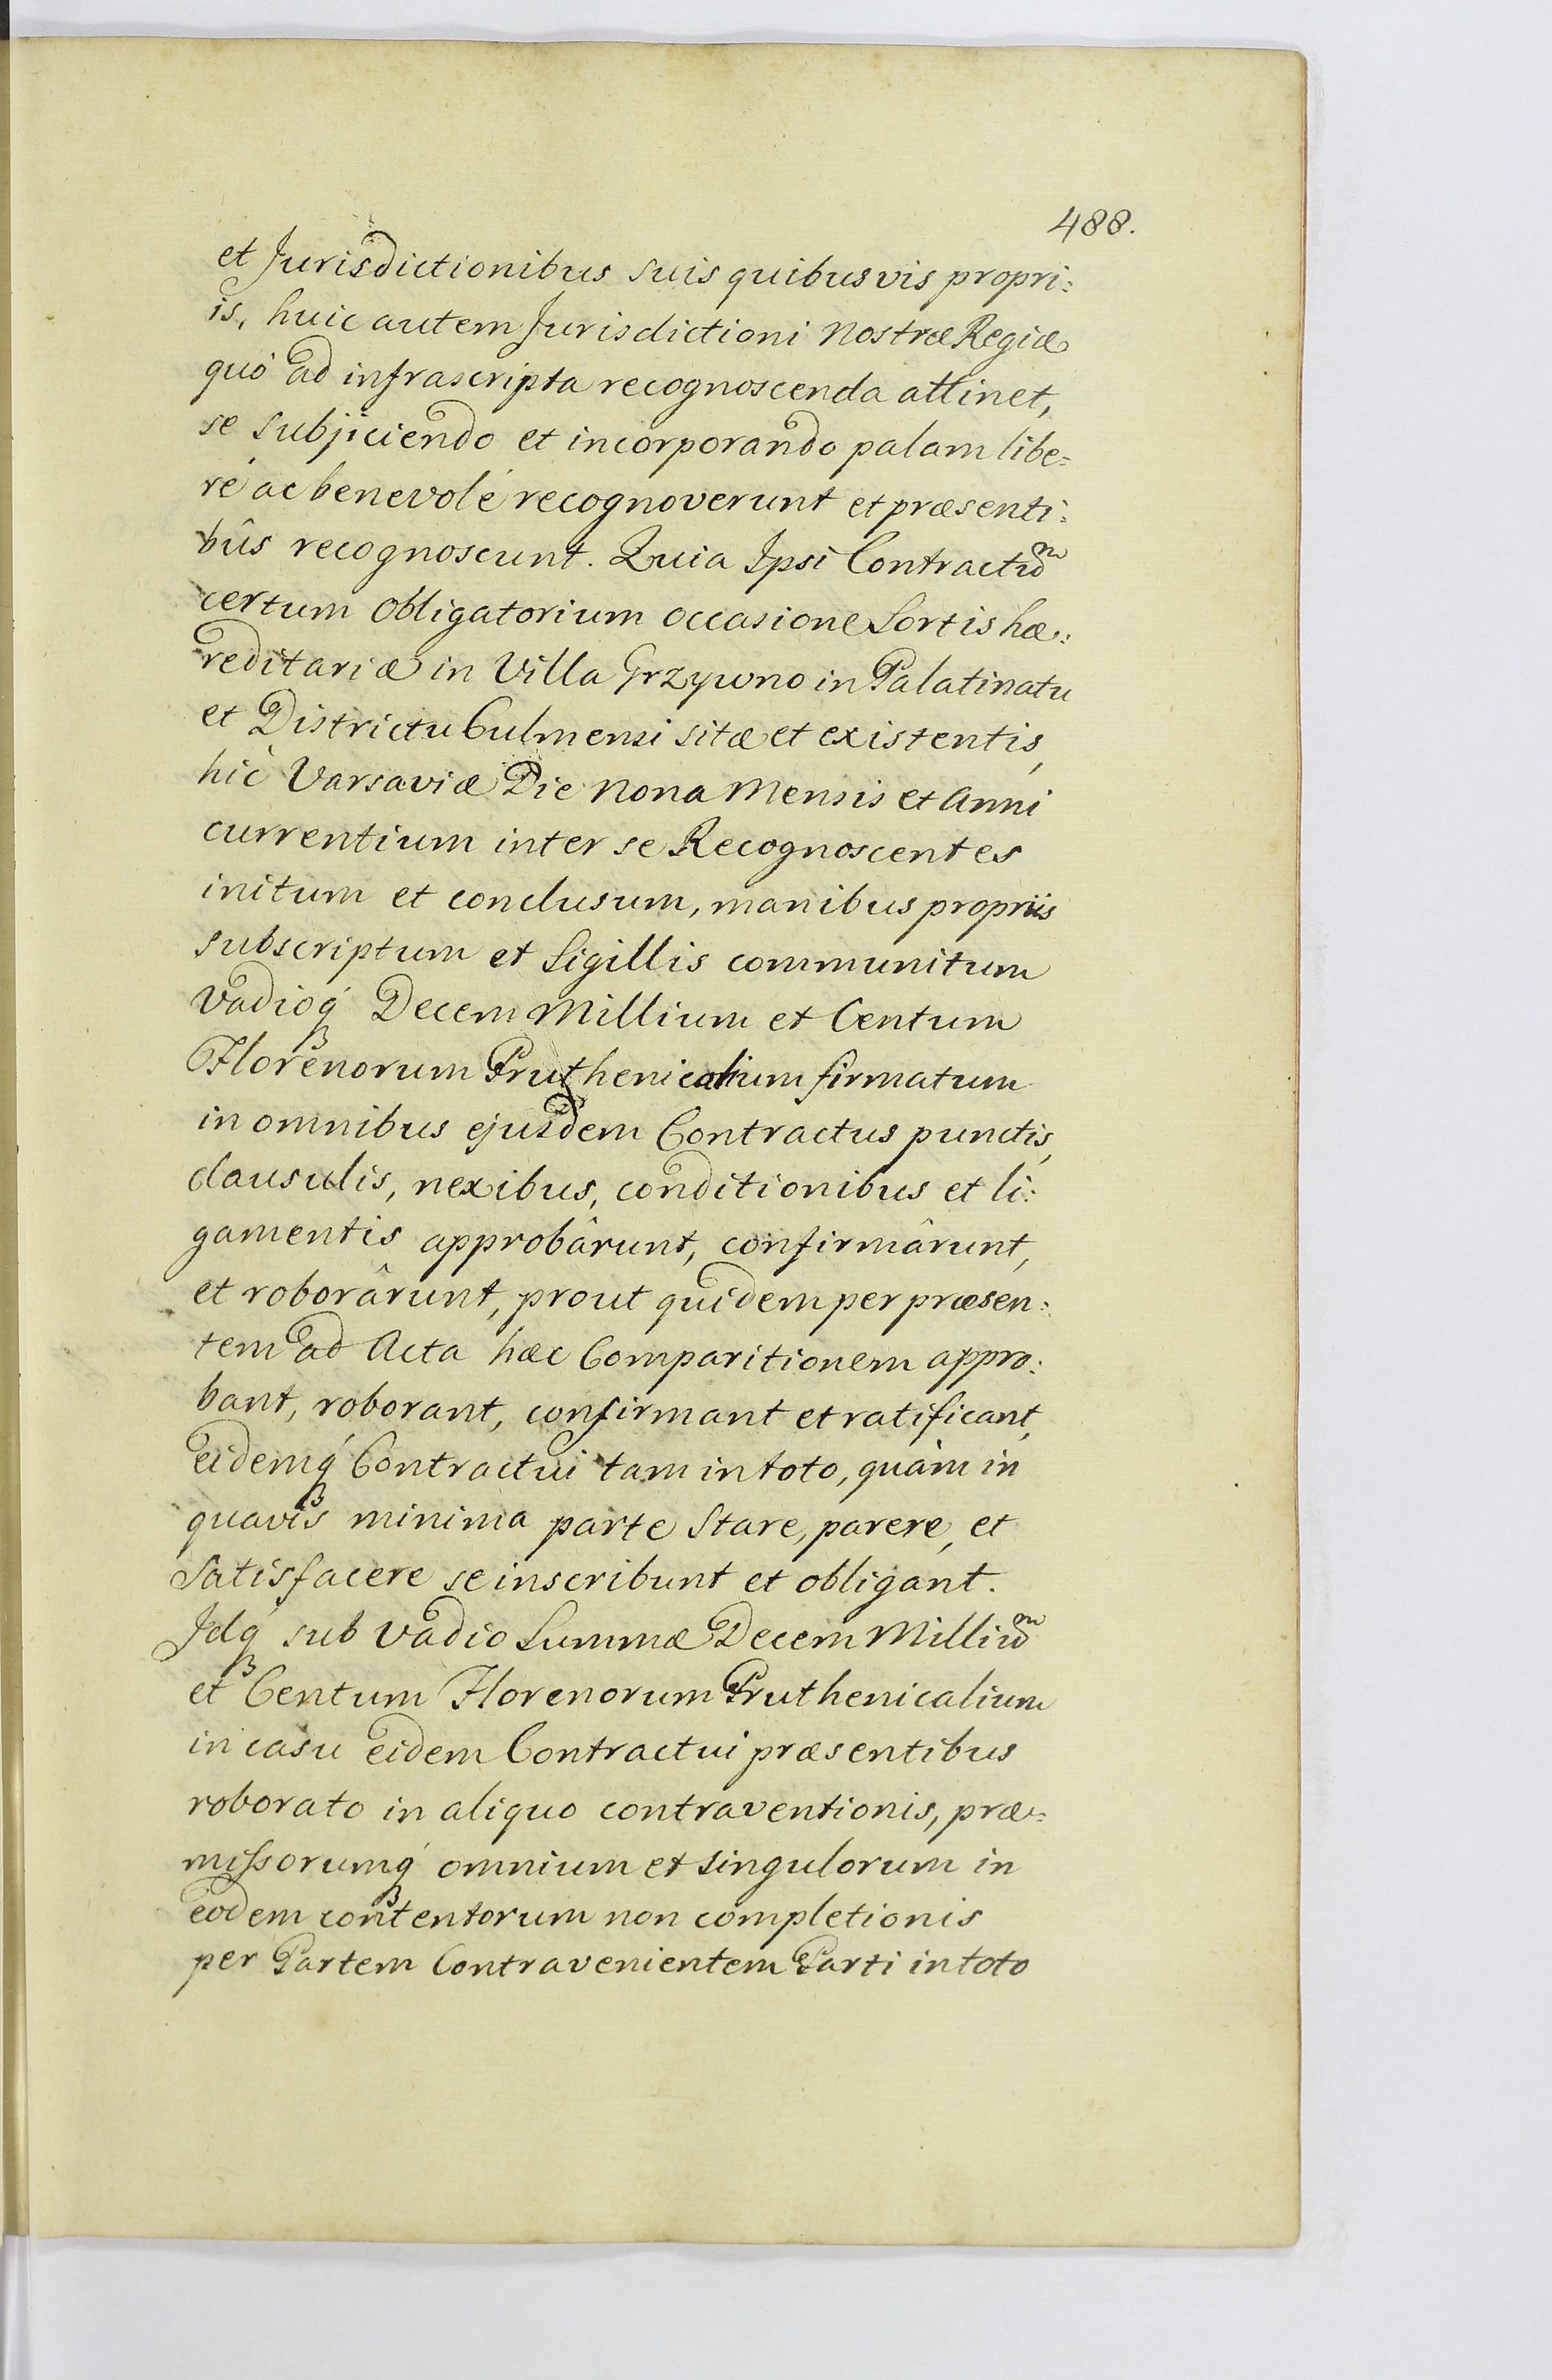 488.
et Jurisdictionibus suis quibusvis propri:
is, huic autem Jurisdictioni Nostræ Regiæ
quò ad infrascripta recognoscenda attinet,
se subjiciendo et incorporando palam libe=
ré ac benevolé recognoverunt et præsenti:
bûs recognoscunt. Quia Ipsi Contractum
certum obligatorium occasione Sortis hæ:
reditariæ in Villa Grzywno in Palatinatu
et Districtu Culmensi sitæ et existentis,
hìc Varsaviæ Die Nona Mensis et Anni
currentium inter se Recognoscentes
initum et conclusum, manibus propriis
subscriptum et Sigillis communitum
Vadioq́ Decem Millium et Centum
Florenorum Pruthenicalium firmatum
in omnibus ejusdem Contractus punctis,
clausulis, nexibus, conditionibus et li:
gamentis approbârunt, confirmârunt,
et roborârunt, prout quidem per præsen:
tem ad Acta hæc Comparitionem appro:
bant, roborant, confirmant et ratificant,
eidemq́ Contractui tam in toto, quàm in
quavis minima parte Stare, parere, et
Satisfacere se inscribunt et obligant.
Idq́ sub Vadio Summæ Decem Millium
et Centum Florenorum Pruthenicalium
in casu eidem Contractui præsentibus
roborato in aliquo contraventionis, præ=
missorumq́ omnium et singulorum in
eodem contentorum non completionis
per Partem Contravenientem Parti in toto